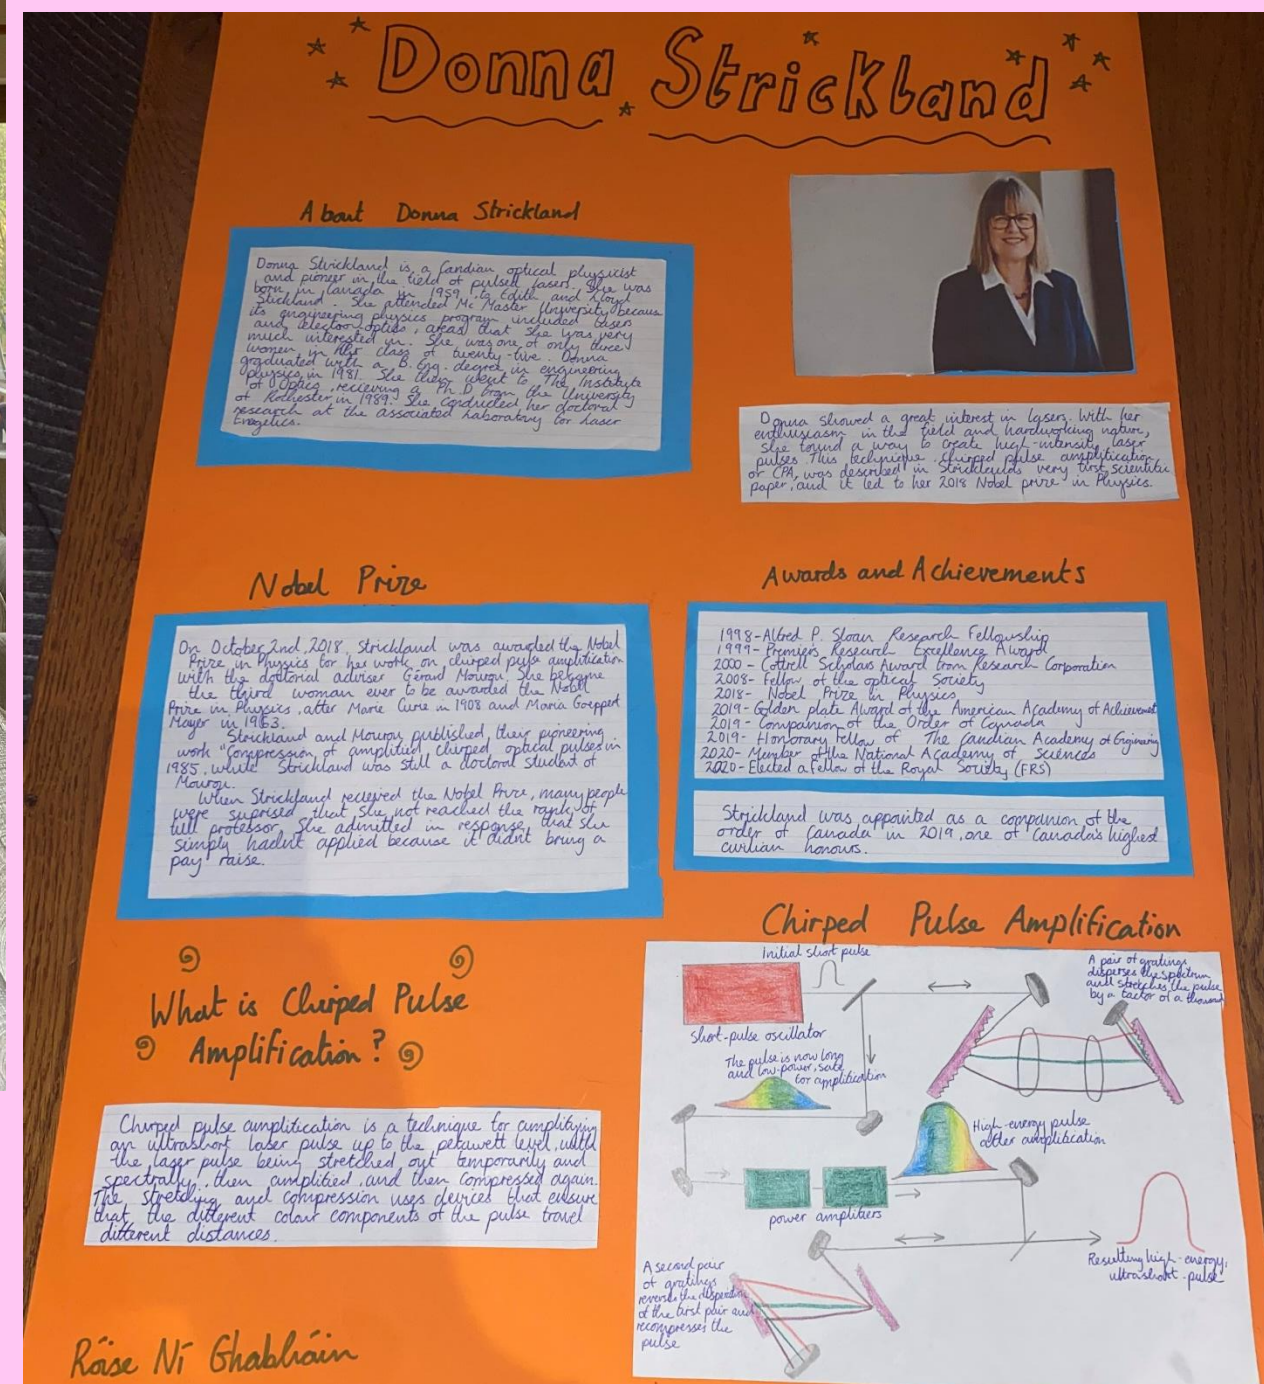 Donna Strickland
About Donna Strickland
Donna Strickland is a Candian optical physicist
and pioneer in the field of pulsed lasers. She was
born in Canada in 1959 to Edith and Lloyd
Stickland. She attended Mc Master University because
its engineering physics program included lasers
and electro-optics, areas that she was very
much interested in. She was one of only three
women in her class of twenty-five. Donna
graduated with a B. Eng. degree in engineering
physics in 1981. She then went to The Institute
of Optics, recieving a Ph.D from the University
of Rochester in 1989. She conducted her doctoral
research at the associated Laboratory for Laser
Donna showed a great interest in lasers. With her
enthusiasm in the field and hardworking nature,
she found a way to create high-intensity laser
pulses. This technique, chirped pulse amplification
or CPA, was described in very first scientific
paper, and it led to her 2018 Nobel prize in Physics.
Nobel Prize
On October 2nd, 2018, Strickland was awarded the Nobel
Prize in Physics for her work on chirped pulse amplification
with the doctorial adviser Gérard Mourou. She became
the third woman ever to be awarded the Nobel
Prize in Physics, after Marie Curie in 1908 and Maria Goeppert
Mayer in 1963.
Strickland and Mourou published their pioneering
work "Compression of amplified chirped optical pulses in
1985, while Strickland was still a doctoral student of
Mourou.
When Strickland recieved the Nobel Prize, many people
were suprised that she not reached the rank of
full professor. She admitted in response that she
simply hadn't applied because it didn't bring a
pay raise.
Awards and Achievements
1998-Alfred P. Sloan Research Fellowship
1999-Premiers Research Excellence Award
2000 - Cottrell Scholars Award from Research Corporation
2008- Fellow of the optical Society
2018- Nobel Prize in Physics
2019-Golden plate Award of the American Academy of Achievement
2019 - Companion of the Order of Canada
2019- Honorary Fellow of The Candian Academy of
2020- Member of the National Academy of Sciences
2020-Elected a fellow of the Royal Society (FRS)
Strickland was appointed as a companion of the
order of Canada in 2019, one of Canada's highest
civilian honours.
What is Chirped Pulse
Amplification?
Chirped pulse amplification is a technique for amplifying
an ultrashort laser pulse up to the level, with
the laser pulse being stretched out temporarily and
spectrally, then amplified, and then compressed again.
The stretching and compression uses devices that ensure
that the different colour components of the pulse travel
different distances.
Chirped Pulse Amplification
Initial short pulse
short-pulse oscillator
A pair of gratings
disperses the spectrum
and stretches the pulse
by a factor of a thousand
The pulse is now long
and low-power, safe
for amplification
High-energy pulse
after amplification
power amplifiers
A second pair
of gratings
reverses the dispersion
of the first pair and
recompresses the
pulse
Resulting high-energy,
ultrashort-pulse
Róise Ní Ghabháin